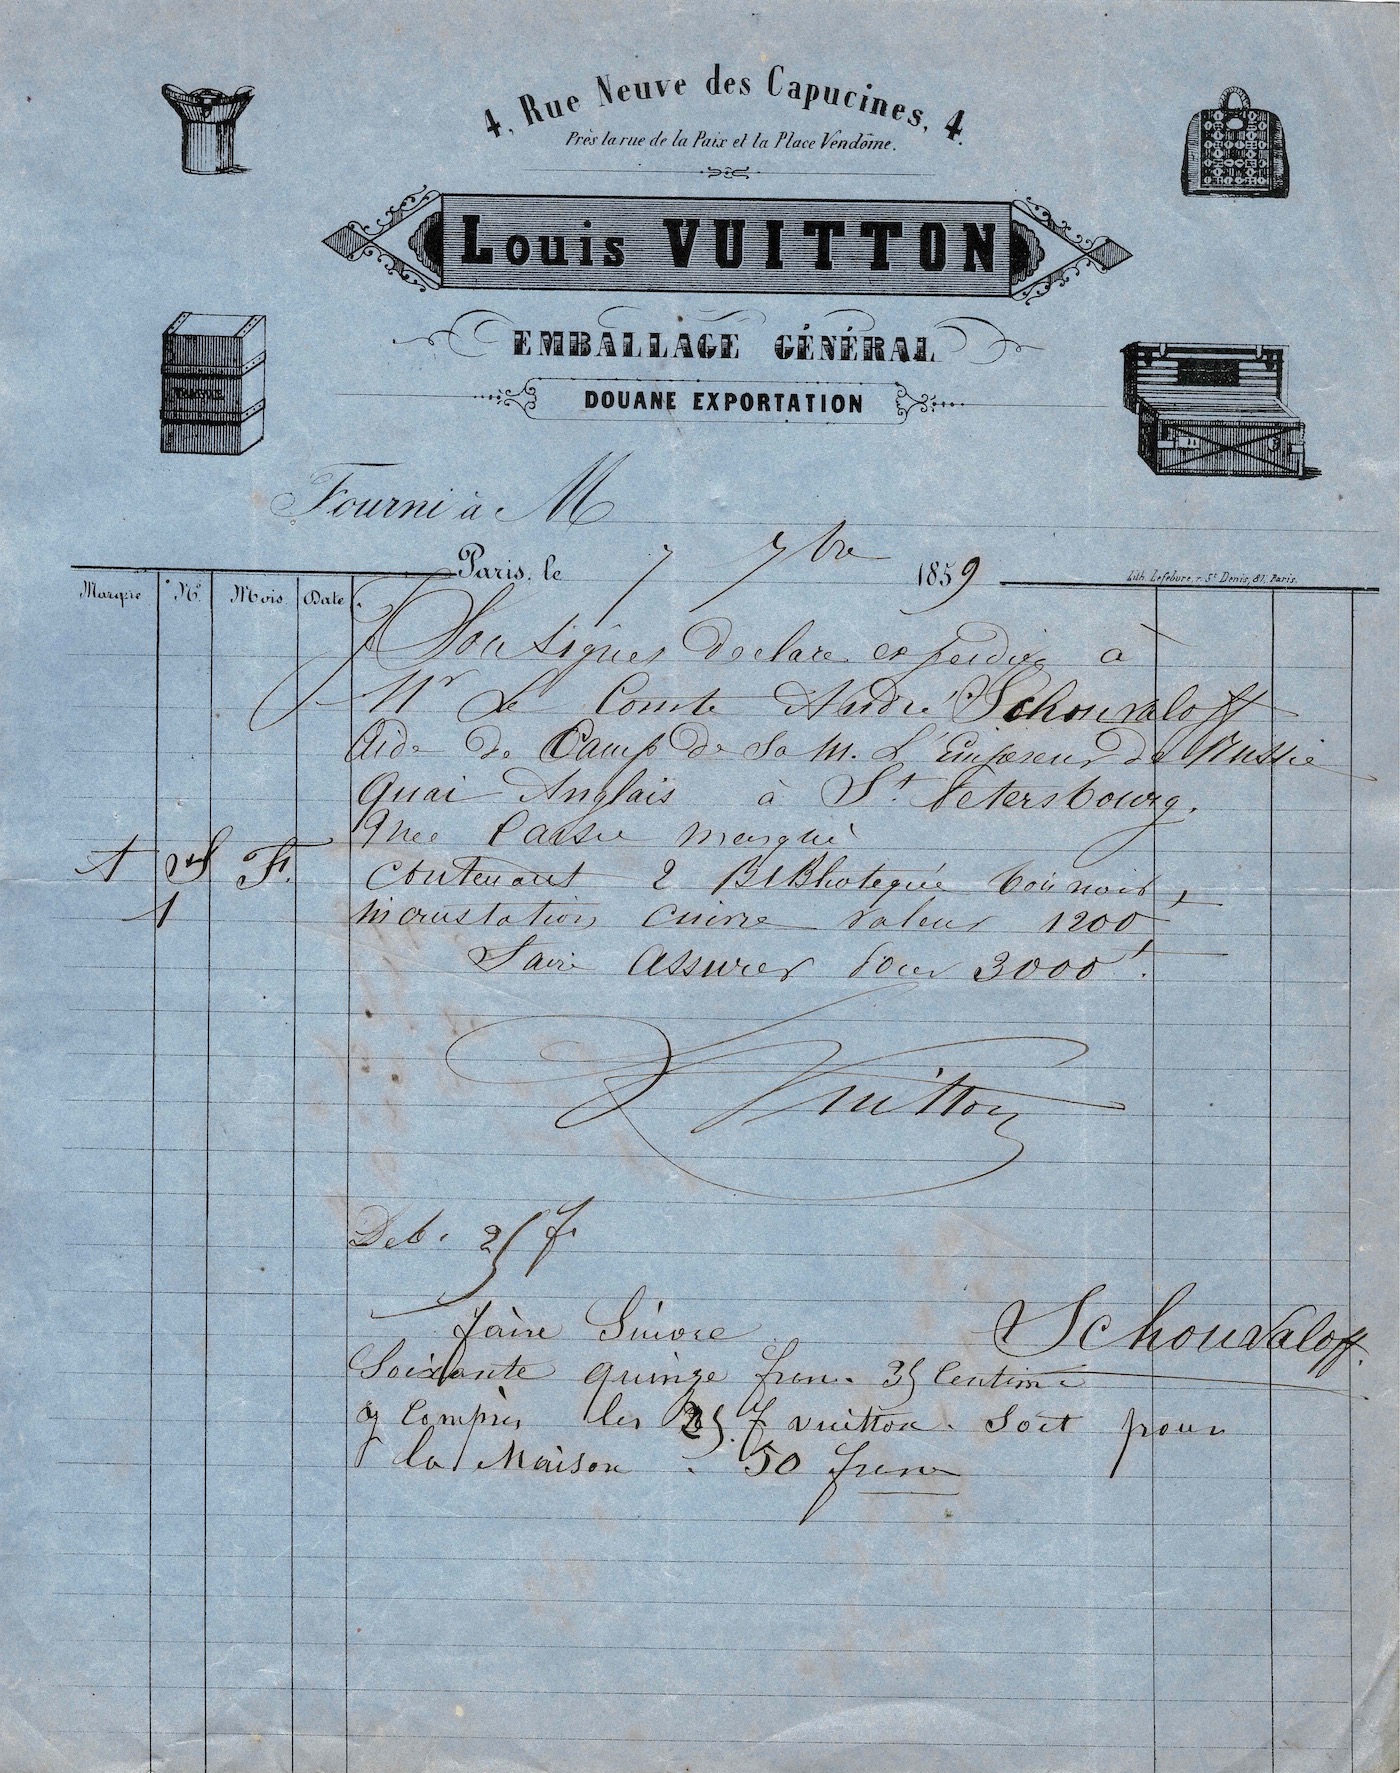 4, Rue Neuve des Capucines, 4.
Près la rue de la Paix et la Place Vendôme.
Louis VUITTON
EMBALLAGE GÉNÉRAL
DOUANE EXPORTATION
Fourni à M
Paris, le 7 7bre 1859
Lith. Lefebure, r. St Denis, 81, Paris.
Marque No. Mois Date
Je Sousignes declare expedier à
Mr Le Comte André Schouvaloff
Aide de Camp de Sa M. L'Empereur de Russie
Quai Anglais à St. Petersbourg.
Une Caisse marqué
A S F. Contenant 2 BiBliotequé boi noir,
1 incrustation cuivre valeur 1200 f
Faire Assurer pour 3000 f.
L Vuitton
Deb. 25 f
faire Suivre Schouvaloff.
Soixante quinze fran. 35 Centime
y Compris les 25. f vuitton. Soit pour
la Maison . 50 franc